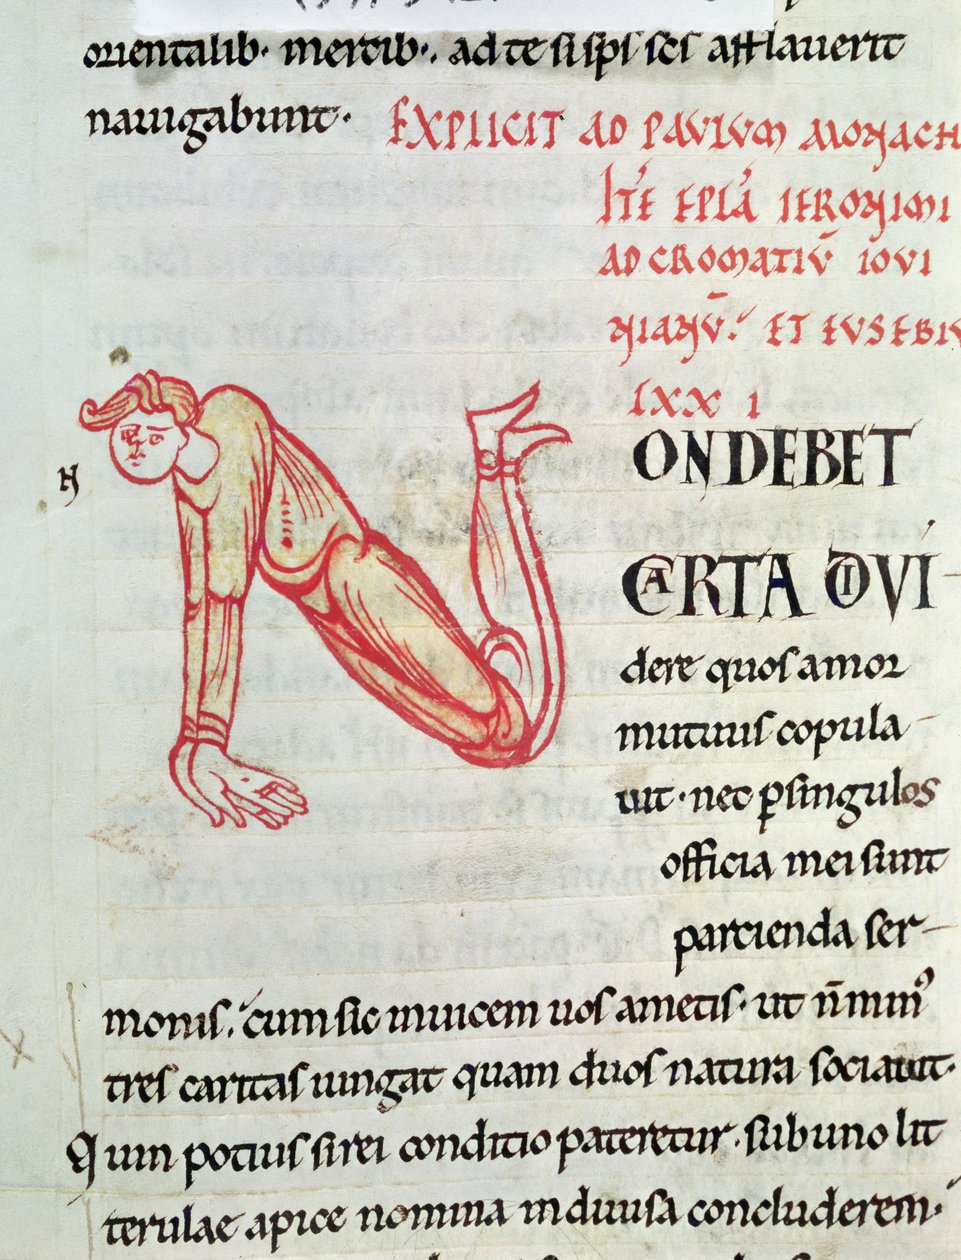 orientalib· mercib·, ad te si sp̄s scs afflauerit
nauigabunt· EXPLICIT AD PAVLVM MONACH
IT̄E EPLA IERONIMI
AD CROMATIV̄ IOVI
NIANV̄· ET EVSEBIV
LXX I
N
ON DEBET
CARTA DIVI
dere quos amor
mutuus copula
uit· nec p̄ singulos
officia mei sunt
partienda ser
monis, cum sic inuicem uos ametis· ut n̄ minꝰ
tres caritas iungat quam duos natura sociauit·
Quin potius si rei conditio pateretur· sub uno lit
terulae apice nomina indiuisa concluderem·